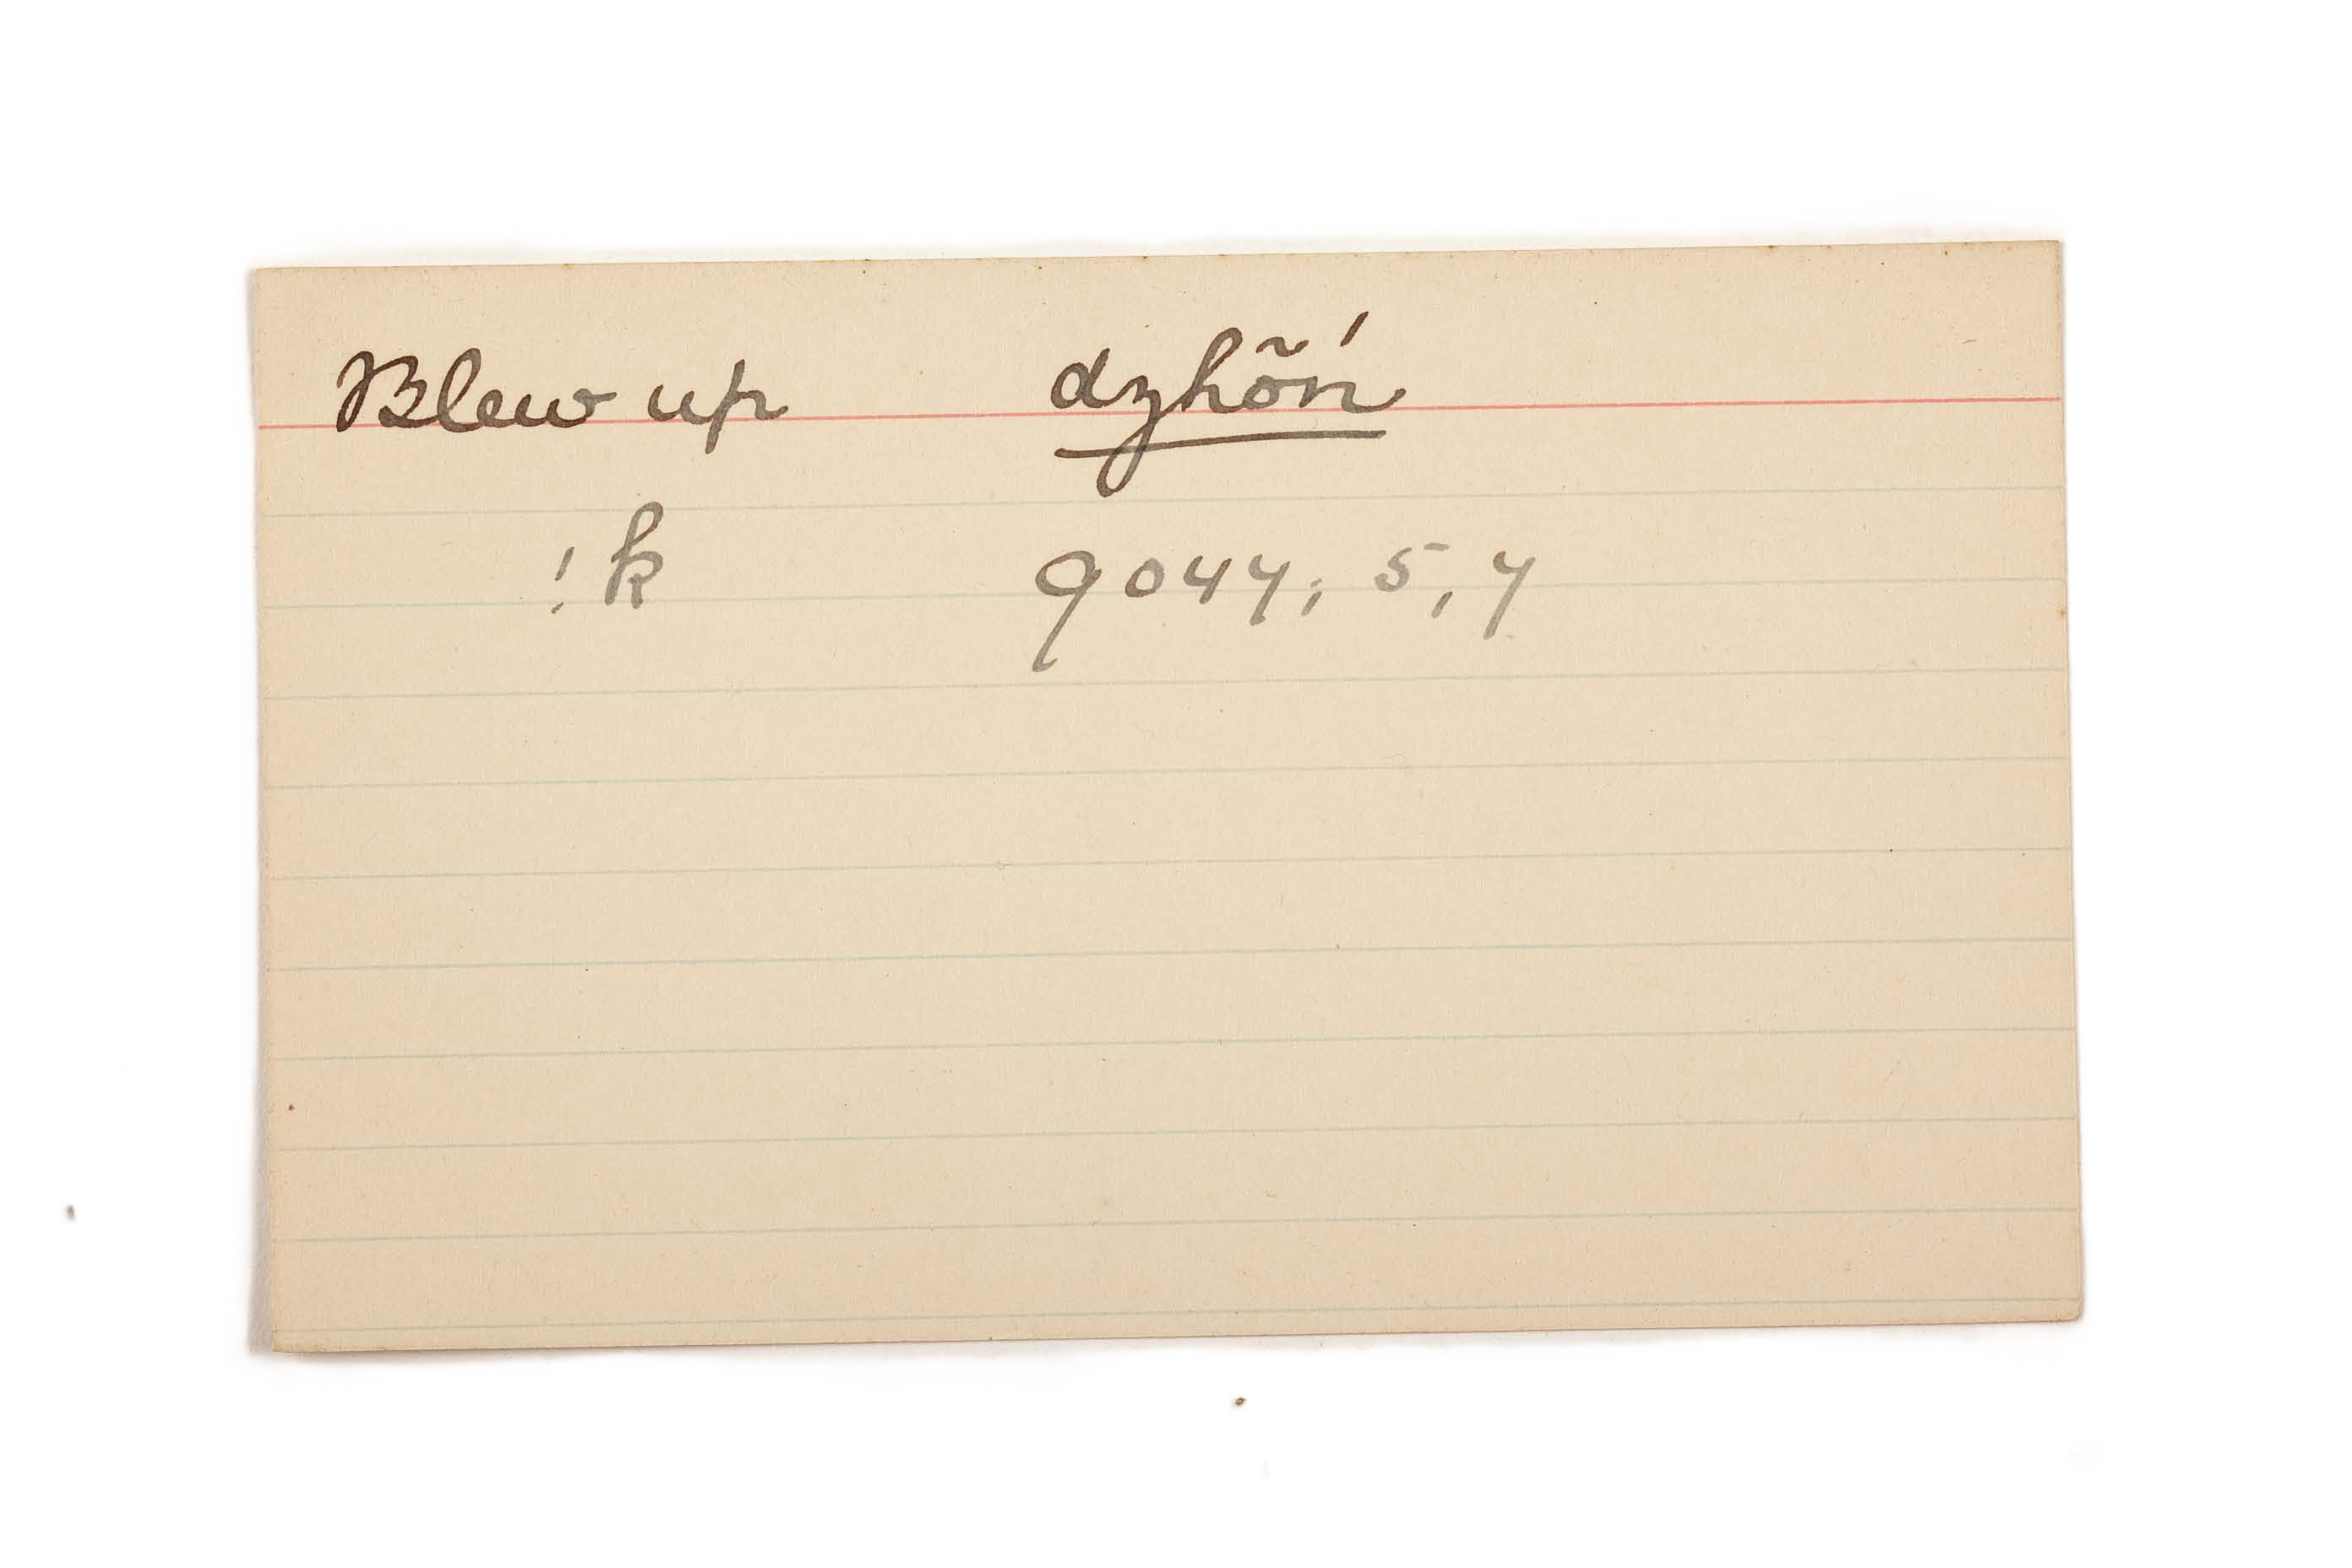 Blew up dzhõń
!k 9044; 5, 4